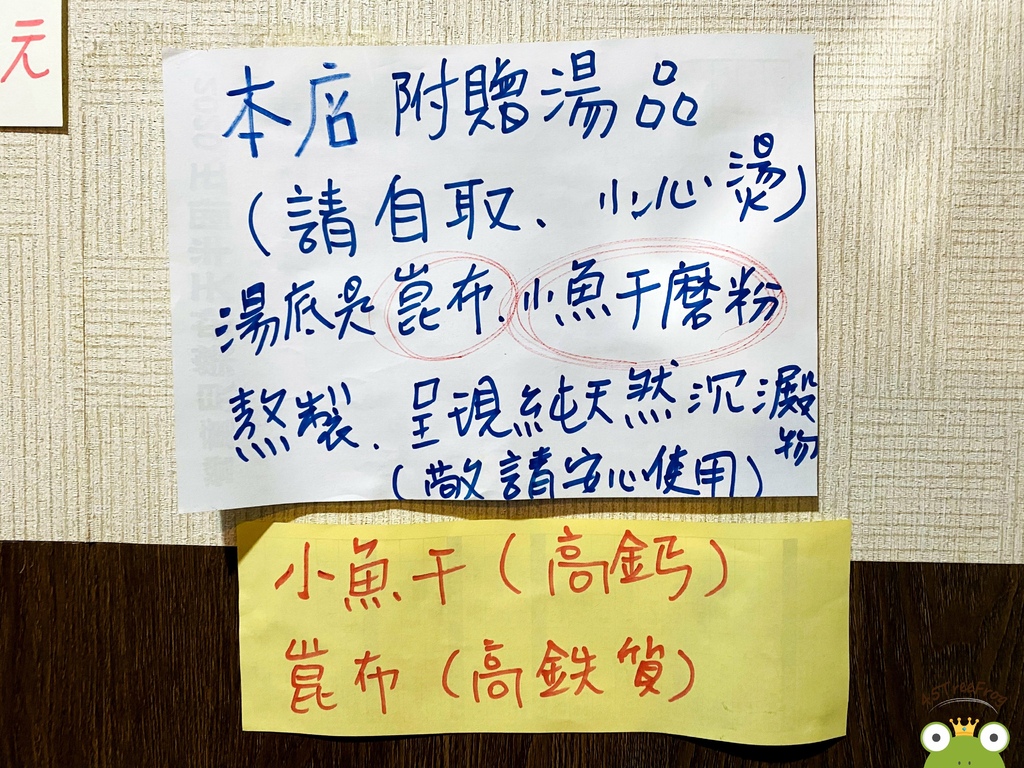 元
本店附贈湯品
(請自取、小心燙)
湯底是崑布、小魚干磨粉
熬製、呈現純天然沉澱物
(敬請安心使用)
小魚干(高鈣)
崑布(高鉄質)